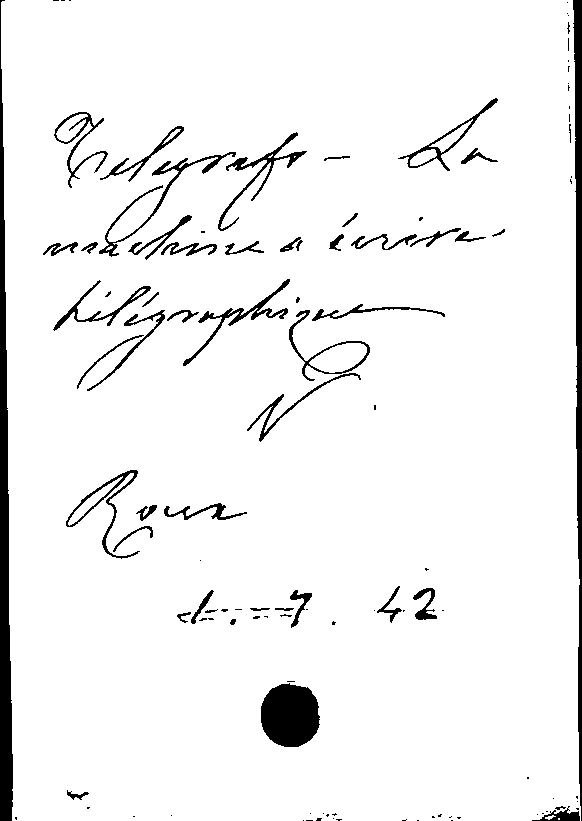 Telegrafo - La
machine a écrire
télégraphique
V.
Roux
t. 7. 42